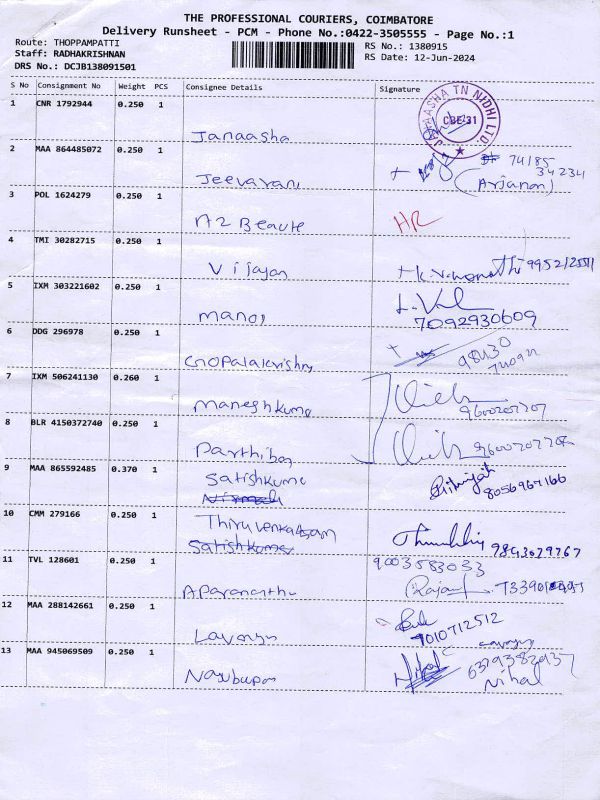 THE PROFESSIONAL COURIERS, COIMBATORE
Delivery Runsheet - PCM - Phone No.:0422-3505555 - Page No.:1
Route: THOPPAMPATTI RS No.: 1380915
Staff: RADHAKRISHNAN RS Date: 12-Jun-2024
DRS No.: DCJB138091501
S No Consignment No Weight PCS Consignee Details Signature
1 CNR 1792944 0.250 1
Janaasha
JANAASHA TN NIDHI LTD. CBE-31
2 MAA 864485072 0.250 1
Jeevarani
74185
34234
(Arjanan)
3 POL 1624279 0.250 1
A2 Beaute HR
4 TMI 30282715 0.250 1
Vijayan
5 IXM 303221602 0.250 1
Manoj
7092930609
6 DDG 296978 0.250 1
Gopalakrishn
98430
7 IXM 506241130 0.260 1
Maneshkuma
9600207707
8 BLR 4150372740 0.250 1
Parthiban
9 MAA 865592485 0.370 1
Satishkume
8056967166
10 CMM 279166 0.250 1
Thiruvenkatasam
Satishkuma
9843079767
11 TVL 128601 0.250 1
9003583033
Aparanatha
12 MAA 288142661 0.250 1
Lavanya
7010712512
13 MAA 945069509 0.250 1
Nagubupan
Nihal